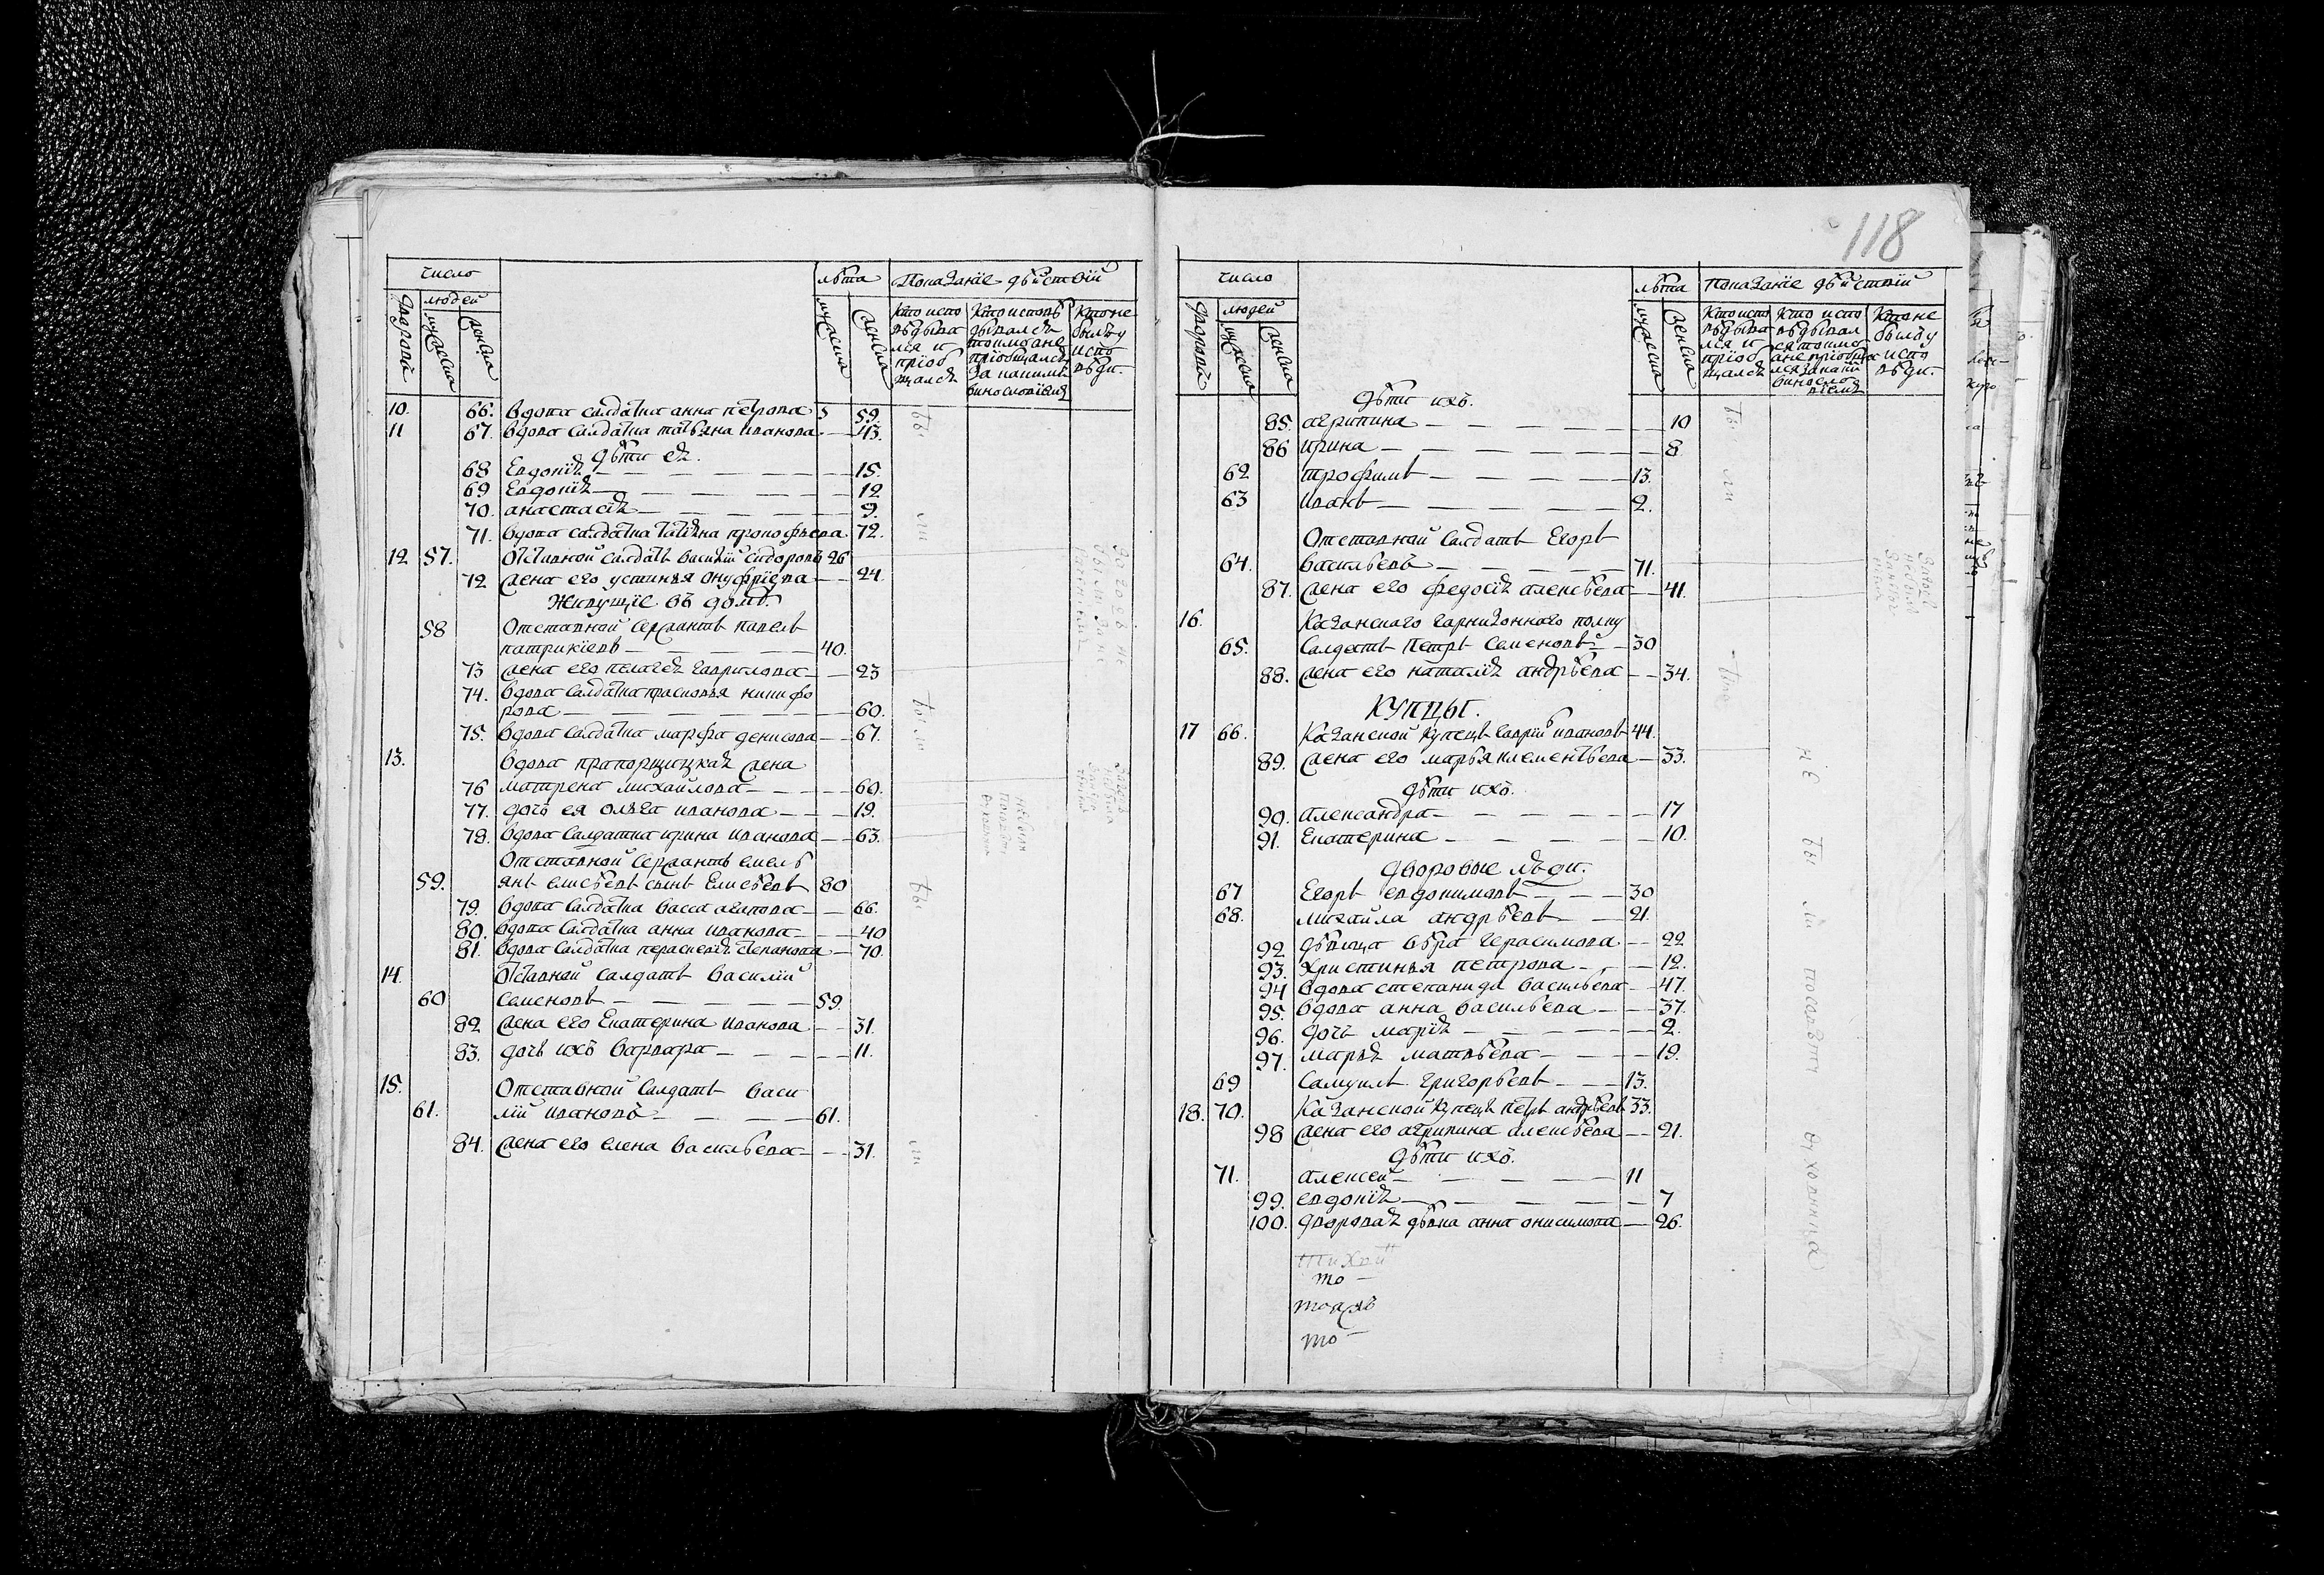 число
лѣта Показанїе дѣйствїй
людей
дворовъ
мужеска
женска
мужеска
женска
Кто испо
вѣдыва
лся и
прїоб
щался
Кто исповѣ
дывался
токмо не
прїобщался
за какимъ
винословїемъ
Кто не
былъ у
испо
вѣди.
10. 66. вдова салдатка анна петрова 59.
11 67. вдова салдатка татьяна иванова 43.
дѣти ея.
68 Евдокїя 15.
69 Евдокїя 12
70. анастасїя 9.
71. вдова салдатка татїяна прокофьева 72.
12 57. Отставной салдатъ василїй сидоровъ 26
72 жена его устинья онуфрїева 24.
Живущїе въ домѣ.
58 Отставной сержантъ павелъ
патрикїевъ 40.
73 жена его пелагея гаврилова 23
74. вдова салдатка прасковья никифо
рова 60.
75. вдова салдатка марфа денисова 67.
13. вдова прапорщицкая жена
76 матрена михайлова 60.
77. дочь ея ольга иванова 19.
78. вдова салдатка ирина иванова 63.
Отставной сержантъ емель
59. янъ елисѣевъ сынъ Елисѣевъ 80
79. вдова салдатка васса агапова 66.
80. вдова салдатка анна иванова 40
81. вдова салдатка парасковїя степанова 70.
14. Отставной салдатъ василїй
60 семеновъ 59.
82 жена его Екатерина иванова 31.
83. дочь ихъ варвара 11.
15. Отставной салдатъ васи
61. лїй ивановъ 61.
84. жена его елена васильева 31.
бы
ли
бы ли
бы
ли
118
число
лѣта Показанїе дѣйствїй
людей
дворовъ
мужеска
женска
мужеска
женска
Кто испо
вѣдыва
лся и
прїоб
щался
Кто испо
вѣдывал
ся токмо
не прїобща
лся за каки
винослов
їемъ
Кто не
былъ у
испо
вѣди.
дѣти ихъ.
85. агрипина 10
86 ирина 8
62 трофимъ 13.
63 иванъ 2.
Отставной салдатъ Егоръ
64. васильевъ 71.
87. жена его федосїя алексѣева 41.
16. Казанского гарнизонного полку
65. Салдатъ Петръ Семеновъ 30
88. жена его наталїя андрѣева 34.
КУПЦЫ.
17 66. Казанской купецъ гаврїй ивановъ 44.
89. жена его марья клементьева 33.
дѣти ихъ.
90. александра 17
91. Екатерина 10.
дворовые люди.
67 Егоръ евдокимовъ 30
68. михайла андрѣевъ 21.
92 дѣвица вѣра герасимова 22
93. христинья петрова 12.
94 вдова степанида васильева 47.
95. вдова анна васильева 37.
96. дочь марїя 2.
97. марья матвѣева 19.
69 Самуилъ григорьевъ 13.
18. 70. Казанской купецъ петръ андрѣевъ 33.
98 жена его агрипина алексѣева 21.
дѣти ихъ.
71. алексей 11
99. евдокїя 7
100. дворовая дѣвка анна онисимова 26.
бы
ли
не бы ли
то
тоажъ
то